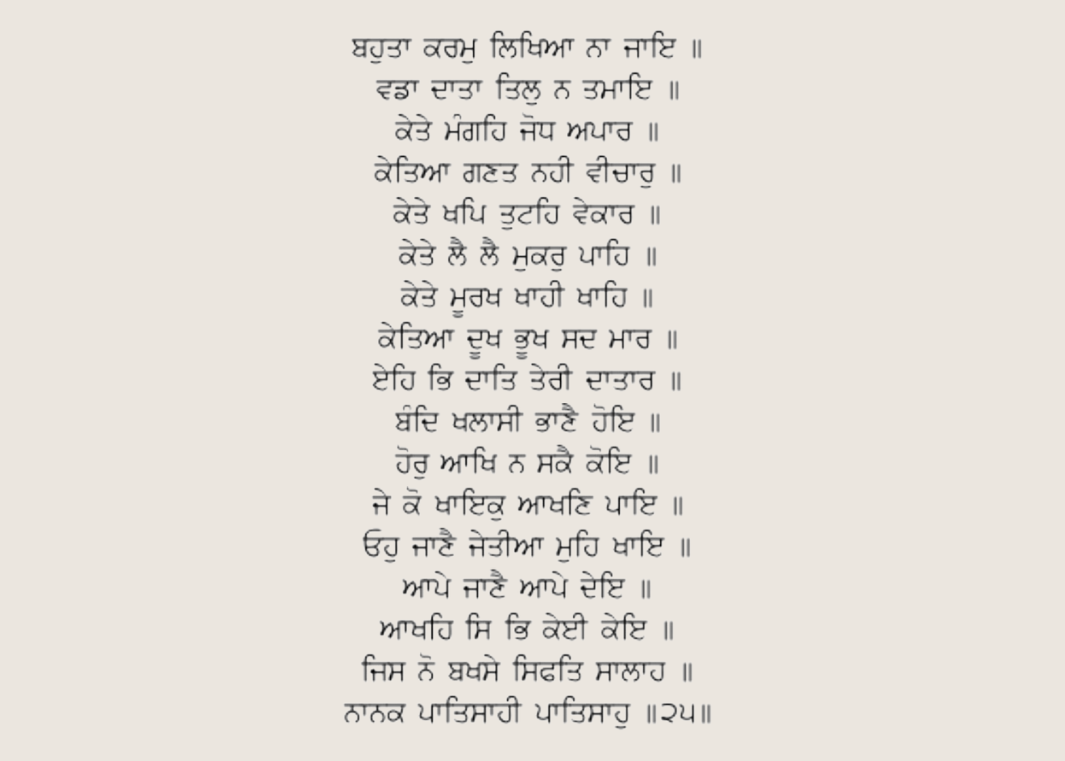 ਬਹੁਤਾ ਕਰਮੁ ਲਿਖਿਆ ਨਾ ਜਾਇ ॥
ਵਡਾ ਦਾਤਾ ਤਿਲੁ ਨ ਤਮਾਇ ॥
ਕੇਤੇ ਮੰਗਹਿ ਜੋਧ ਅਪਾਰ ॥
ਕੇਤਿਆ ਗਣਤ ਨਹੀ ਵੀਚਾਰੁ ॥
ਕੇਤੇ ਖਪਿ ਤੁਟਹਿ ਵੇਕਾਰ ॥
ਕੇਤੇ ਲੈ ਲੈ ਮੁਕਰੁ ਪਾਹਿ ॥
ਕੇਤੇ ਮੂਰਖ ਖਾਹੀ ਖਾਹਿ ॥
ਕੇਤਿਆ ਦੂਖ ਭੂਖ ਸਦ ਮਾਰ ॥
ਏਹਿ ਭਿ ਦਾਤਿ ਤੇਰੀ ਦਾਤਾਰ ॥
ਬੰਦਿ ਖਲਾਸੀ ਭਾਣੈ ਹੋਇ ॥
ਹੋਰੁ ਆਖਿ ਨ ਸਕੈ ਕੋਇ ॥
ਜੇ ਕੋ ਖਾਇਕੁ ਆਖਣਿ ਪਾਇ ॥
ਓਹੁ ਜਾਣੈ ਜੇਤੀਆ ਮੁਹਿ ਖਾਇ ॥
ਆਪੇ ਜਾਣੈ ਆਪੇ ਦੇਇ ॥
ਆਖਹਿ ਸਿ ਭਿ ਕੇਈ ਕੇਇ ॥
ਜਿਸ ਨੋ ਬਖਸੇ ਸਿਫਤਿ ਸਾਲਾਹ ॥
ਨਾਨਕ ਪਾਤਿਸਾਹੀ ਪਾਤਿਸਾਹੁ ॥੨੫॥